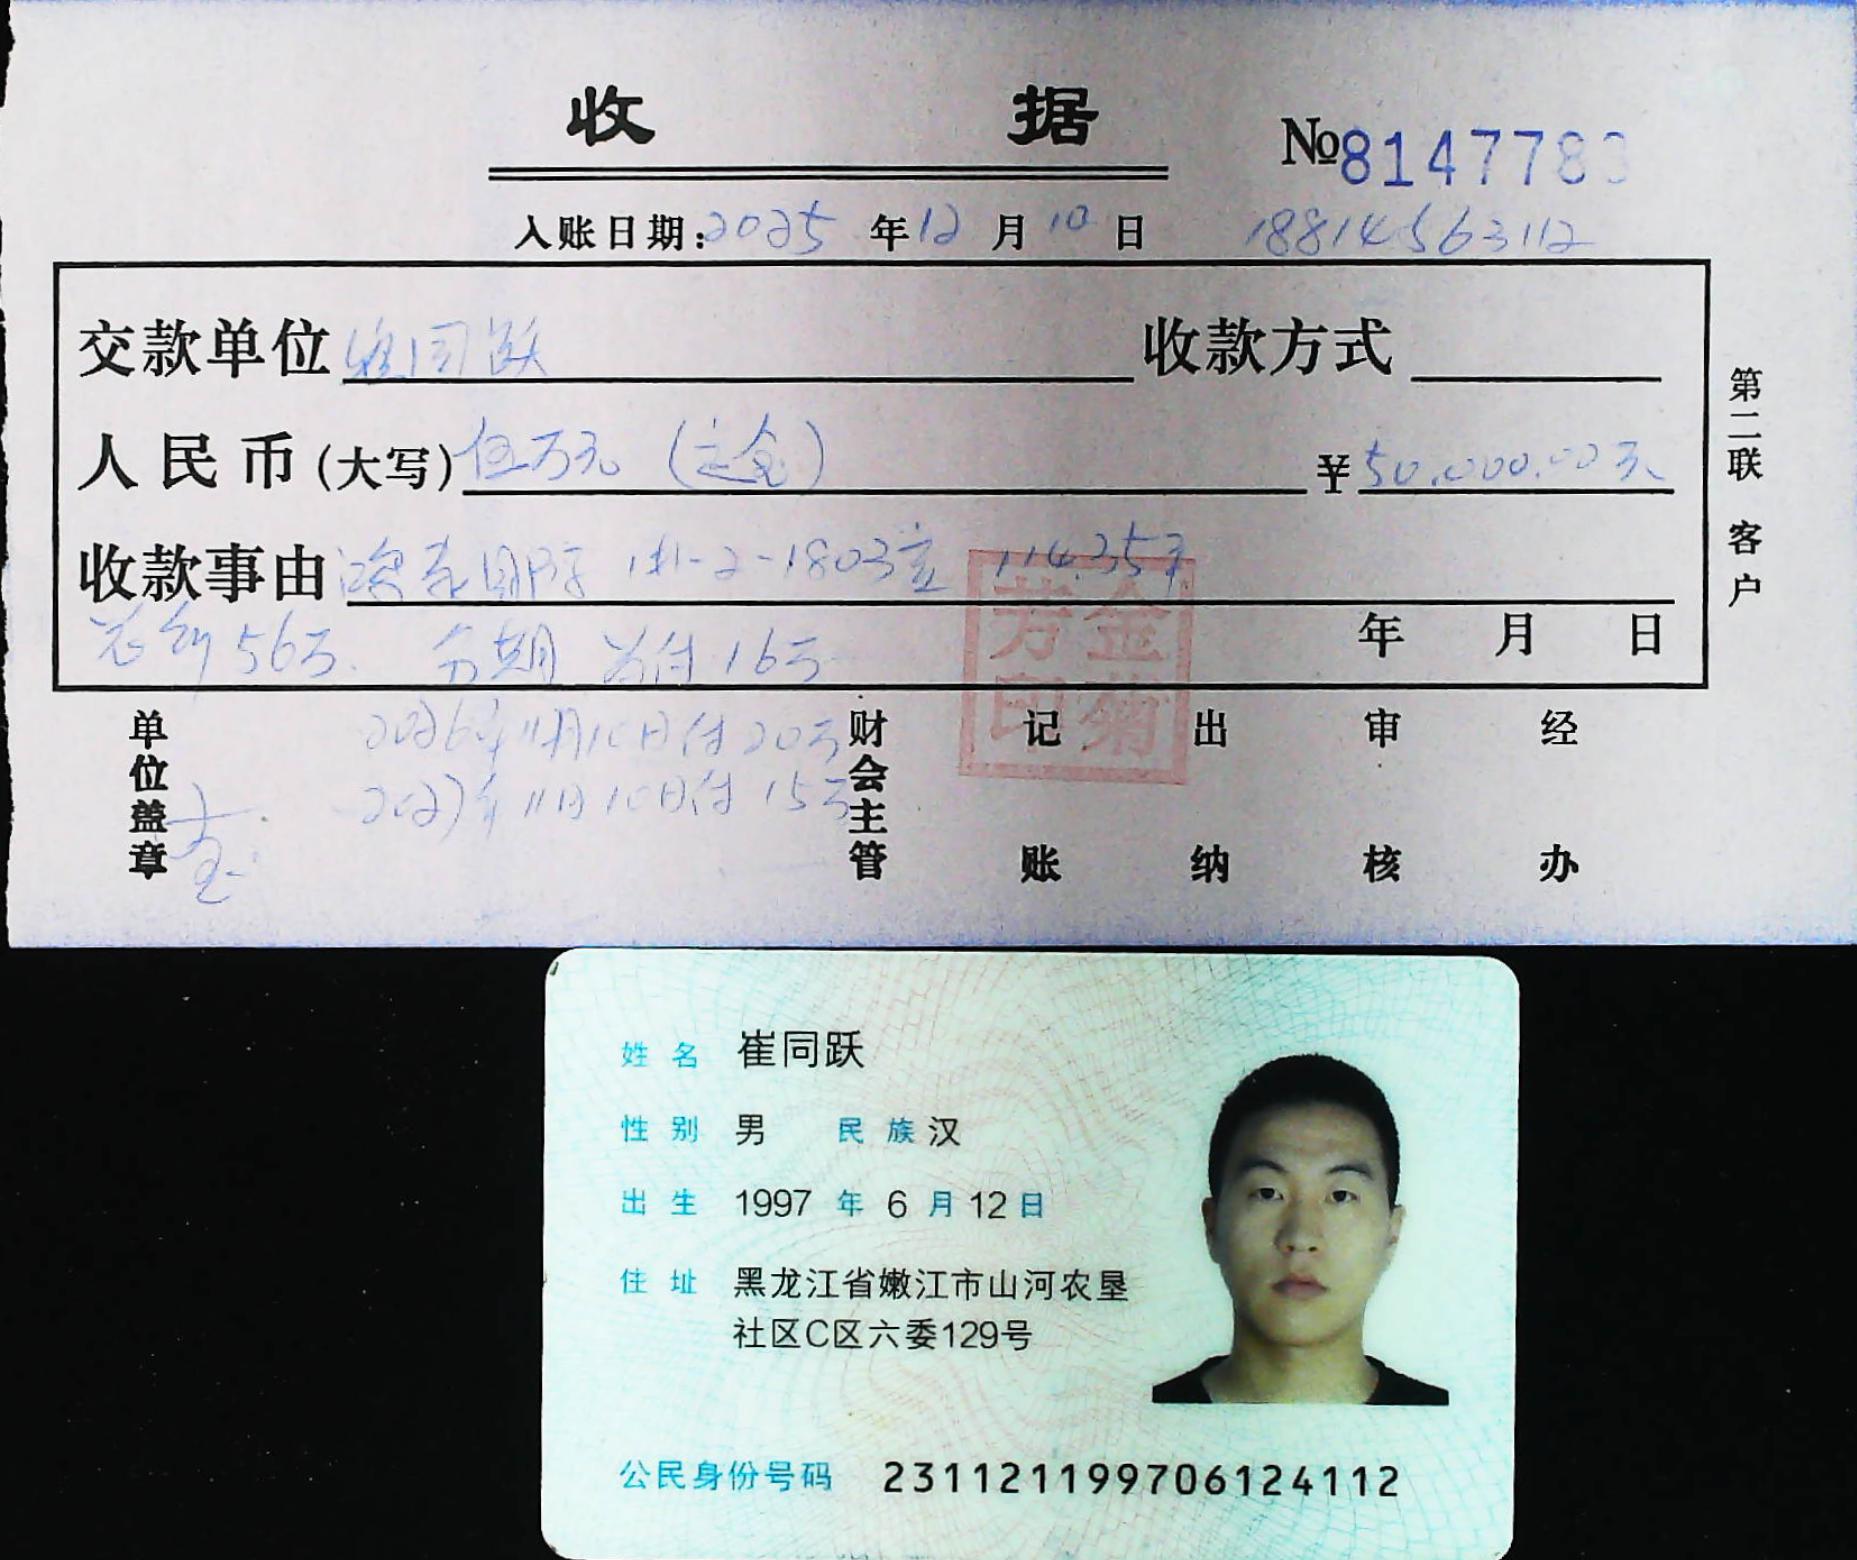 收 据
№814778
入账日期:2025 年12 月 10 日 18814563112
交款单位 崔同跃 收款方式
人民币(大写) 伍万元 (定金) ¥50,000.00元
收款事由 欧克国际 1#1-2-1803室 114.35平
总价56万. 分期 首付16万
年 月 日
2026年11月10日付20万
2027年11月10日付15万
单位盖章
财会主管
记账
出纳
审核
经办
第二联 客户
金菊芳印
姓名 崔同跃
性别 男 民族 汉
出生 1997 年 6 月 12 日
住址 黑龙江省嫩江市山河农垦
社区C区六委129号
公民身份号码 231121199706124112